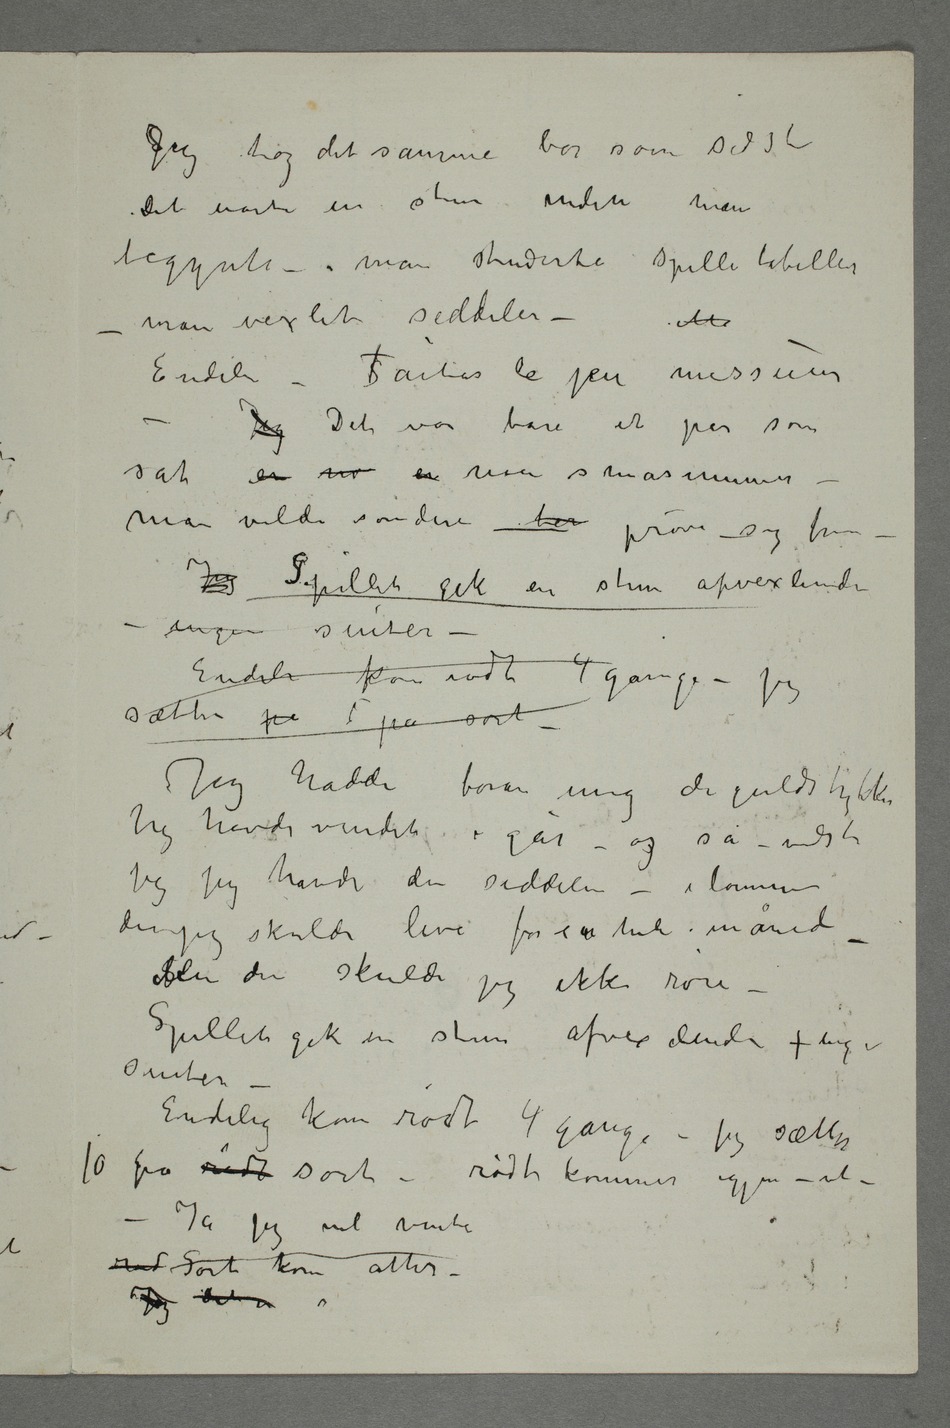 Jeg tog det samme bor som sidst
Det varte en stun inden man
begynte – man studerte spilletabeller
– man vexlet seddeler –
Endeli – Faites le jeu messieurs
– Jeg Det var bare et par som
sat en no en noen småsummer –
man vilde sondere – prøve sig frem –
Jeg Spillet gik en stun afvexlende
– ingen suiter –
Endeli kom rødt 4 gange – jeg
sætter på 5 på sort –
Jeg hadde foran mig de guldstykker
jeg havde vundet i går – og så – vidste
jeg jeg havde den seddelen – i lommen
den jeg skulde leve for en hel måned –
Men den skulde jeg ikke røre –
Spillet gik en stun afvexlende + inge
suiter –
Endelig kom rødt 4 gange – jeg sætter
10 på rødt sort – rødt kommer igjen – et –
– Ja jeg vil vente
rød Sort kom atter –
Jeg det er